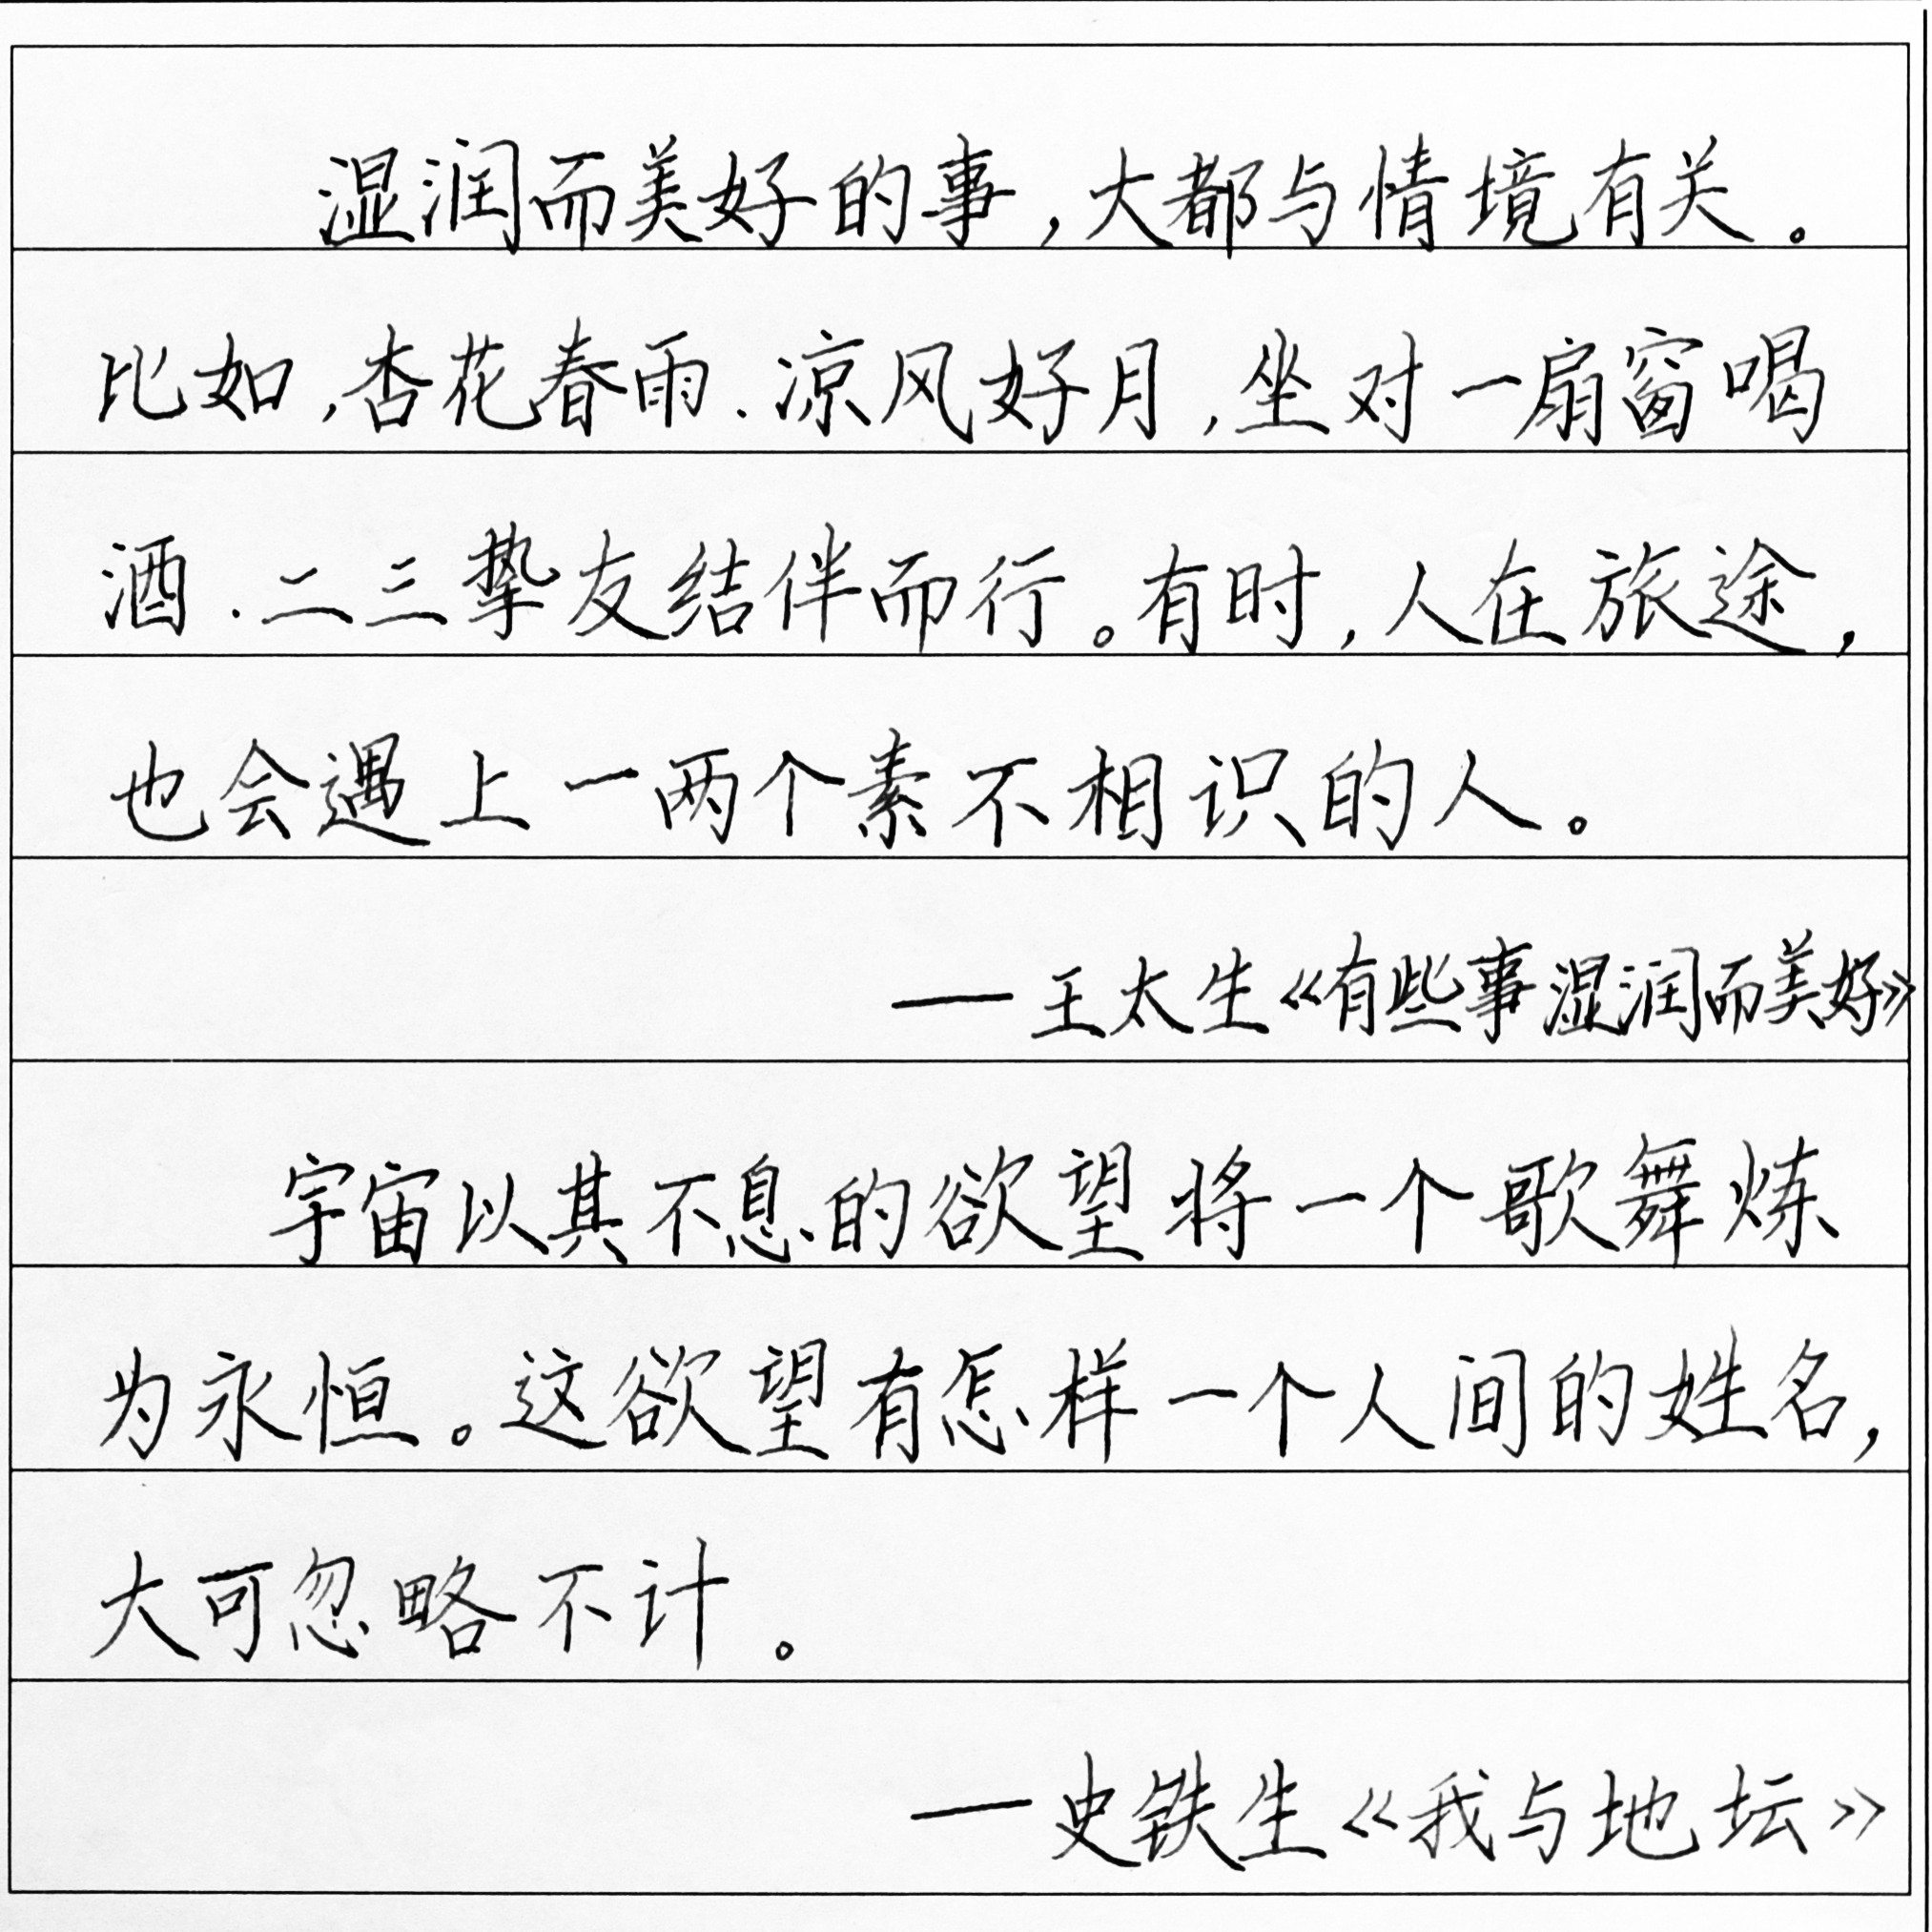 湿润而美好的事,大都与情境有关。
比如,杏花春雨、凉风好月,坐对一扇窗喝
酒、二三挚友结伴而行。有时,人在旅途,
也会遇上一两个素不相识的人。
——王太生《有些事湿润而美好》
宇宙以其不息的欲望将一个歌舞炼
为永恒。这欲望有怎样一个人间的姓名,
大可忽略不计。
——史铁生《我与地坛》